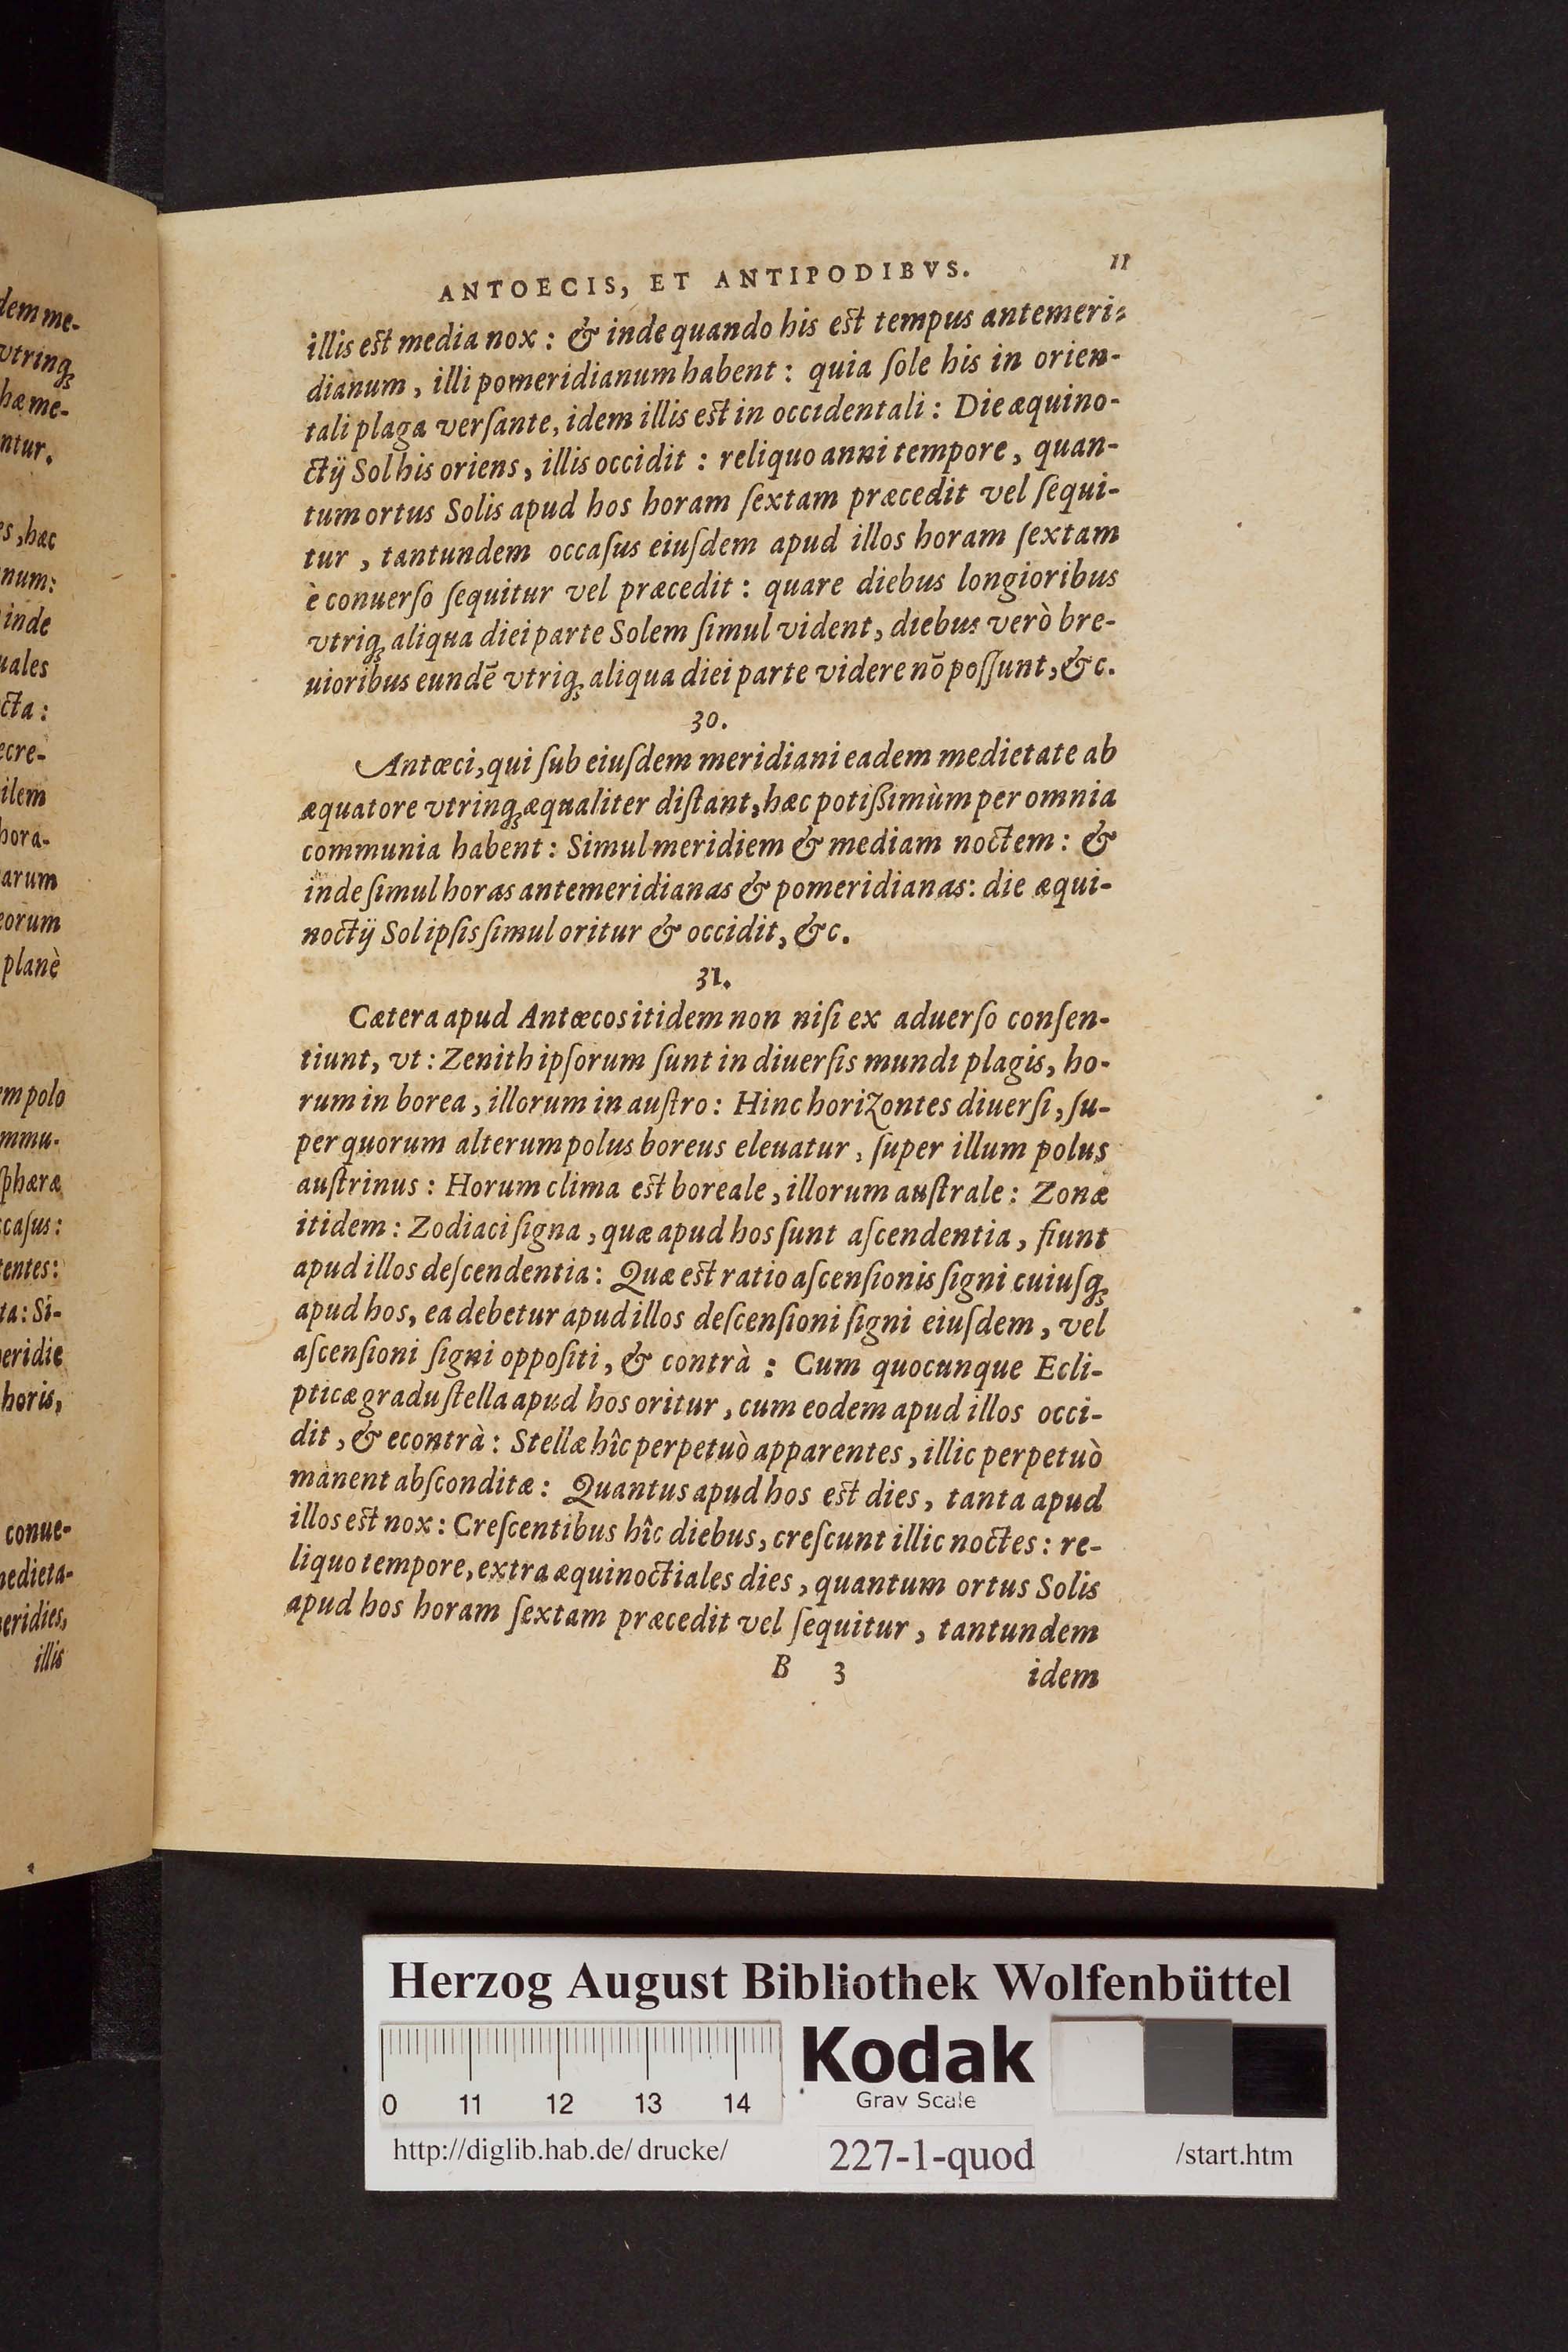 dem me-
vtrinq́ꝫ
hæ me-
ntur.
es, hæc
num:
inde
uales
cta:
ecre-
ilem
hora-
arum
eorum
planè
em polo
mmu-
ſphæræ
ccaſus:
tentes:
ta: Si-
eridie
horis,
conue-
medieta-
eridies,
illis
ANTOECIS, ET ANTIPODIBVS. 11
illis eſt media nox: & inde quando his eſt tempus antemeri-
dianum, illi pomeridianum habent: quia ſole his in orien-
tali plaga verſante, idem illis eſt in occidentali: Die æquino-
ctij Sol his oriens, illis occidit: reliquo anni tempore, quan-
tum ortus Solis apud hos horam ſextam præcedit vel ſequi-
tur, tantundem occaſus eiuſdem apud illos horam ſextam
è conuerſo ſequitur vel præcedit: quare diebus longioribus
vtriqꝫ aliqua diei parte Solem ſimul vident, diebus verò bre-
uioribus eundē vtriqꝫ aliqua diei parte videre nō poſſunt, &c.
30.
Antœci, qui ſub eiuſdem meridiani eadem medietate ab
æquatore vtrinqꝫ æqualiter diſtant, hæc potißimùm per omnia
communia habent: Simul meridiem & mediam noctem: &
inde ſimul horas antemeridianas & pomeridianas: die æqui-
noctij Sol ipſis ſimul oritur & occidit, &c.
31.
Cætera apud Antœcos itidem non niſi ex aduerſo conſen-
tiunt, vt: Zenith ipſorum ſunt in diuerſis mundi plagis, ho-
rum in borea, illorum in auſtro: Hinc horizontes diuerſi, ſu-
per quorum alterum polus boreus eleuatur, ſuper illum polus
auſtrinus: Horum clima eſt boreale, illorum auſtrale: Zonæ
itidem: Zodiaci ſigna, quæ apud hos ſunt aſcendentia, fiunt
apud illos deſcendentia: Quæ eſt ratio aſcenſionis ſigni cuiuſqꝫ
apud hos, ea debetur apud illos deſcenſioni ſigni eiuſdem, vel
aſcenſioni ſigni oppoſiti, & contrà: Cum quocunque Ecli-
pticæ gradu ſtella apud hos oritur, cum eodem apud illos occi-
dit, & econtrà: Stellæ hîc perpetuò apparentes, illic perpetuò
manent abſconditæ: Quantus apud hos eſt dies, tanta apud
illos eſt nox: Creſcentibus hîc diebus, creſcunt illic noctes: re-
liquo tempore, extra æquinoctiales dies, quantum ortus Solis
apud hos horam ſextam præcedit vel ſequitur, tantundem
B 3 idem
Herzog August Bibliothek Wolfenbüttel
0 11 12 13 14
Kodak
Gray Scale
http://diglib.hab.de/drucke/ 227-1-quod /start.htm